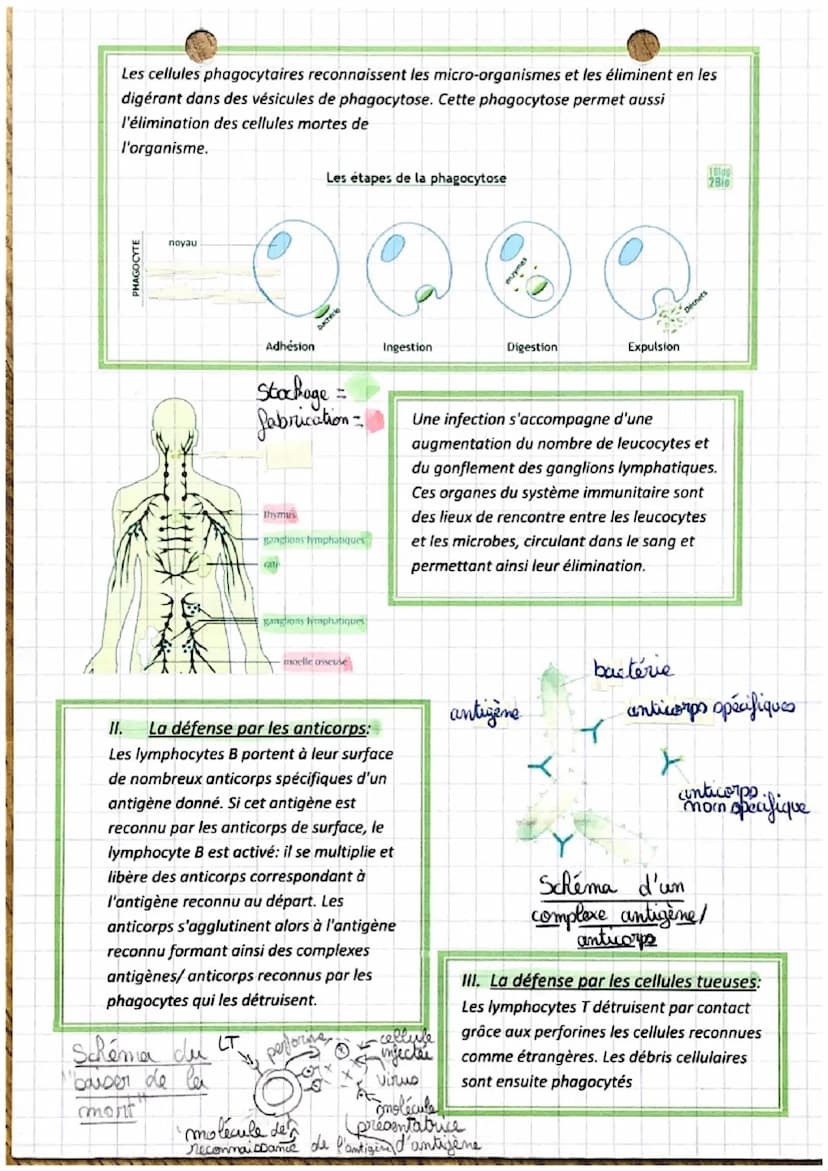 Les cellules phagocytaires reconnaissent les micro-organismes et les éliminent en les
digérant dans des vésicules de phagocytose. Cette phagocytose permet aussi
l'élimination des cellules mortes de
l'organisme.
Les étapes de la phagocytose
1Blop
2Bio
PHAGOCYTE
noyau
bactérie
enzymes
Déchets
Adhésion
Ingestion
Digestion
Expulsion
Stockage =
fabrication =
thymus
ganglions lymphatiques
rate
ganglions lymphatiques
moelle osseuse
Une infection s'accompagne d'une
augmentation du nombre de leucocytes et
du gonflement des ganglions lymphatiques.
Ces organes du système immunitaire sont
des lieux de rencontre entre les leucocytes
et les microbes, circulant dans le sang et
permettant ainsi leur élimination.
bactérie
antigène
anticorps spécifiques
anticorps
non spécifique
Schéma d'un
complexe antigène/
anticorps
II. La défense par les anticorps:
Les lymphocytes B portent à leur surface
de nombreux anticorps spécifiques d'un
antigène donné. Si cet antigène est
reconnu par les anticorps de surface, le
lymphocyte B est activé: il se multiplie et
libère des anticorps correspondant à
l'antigène reconnu au départ. Les
anticorps s'agglutinent alors à l'antigène
reconnu formant ainsi des complexes
antigènes/ anticorps reconnus par les
phagocytes qui les détruisent.
III. La défense par les cellules tueuses:
Les lymphocytes T détruisent par contact
grâce aux perforines les cellules reconnues
comme étrangères. Les débris cellulaires
sont ensuite phagocytés
Schéma du
"baiser de la
mort"
LT
perforine
cellule
infectée
virus
molécule
présentatrice
d'antigène
molécule de
reconnaissance de l'antigène